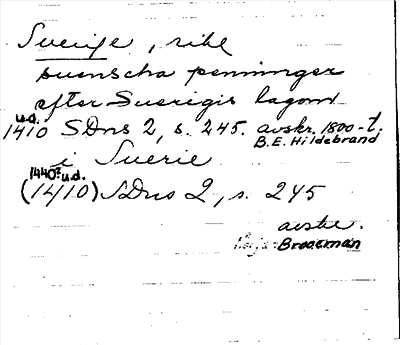 Sverige, rike
suenscha penninger
efter Suerigis lagom
u.d.
1410 SDns 2, s. 245. avskr. 1800-t.
B.E. Hildebrand
i Suerie
1440? u.d.
(1410) SDns 2, s. 245
avskr.
Brooeman